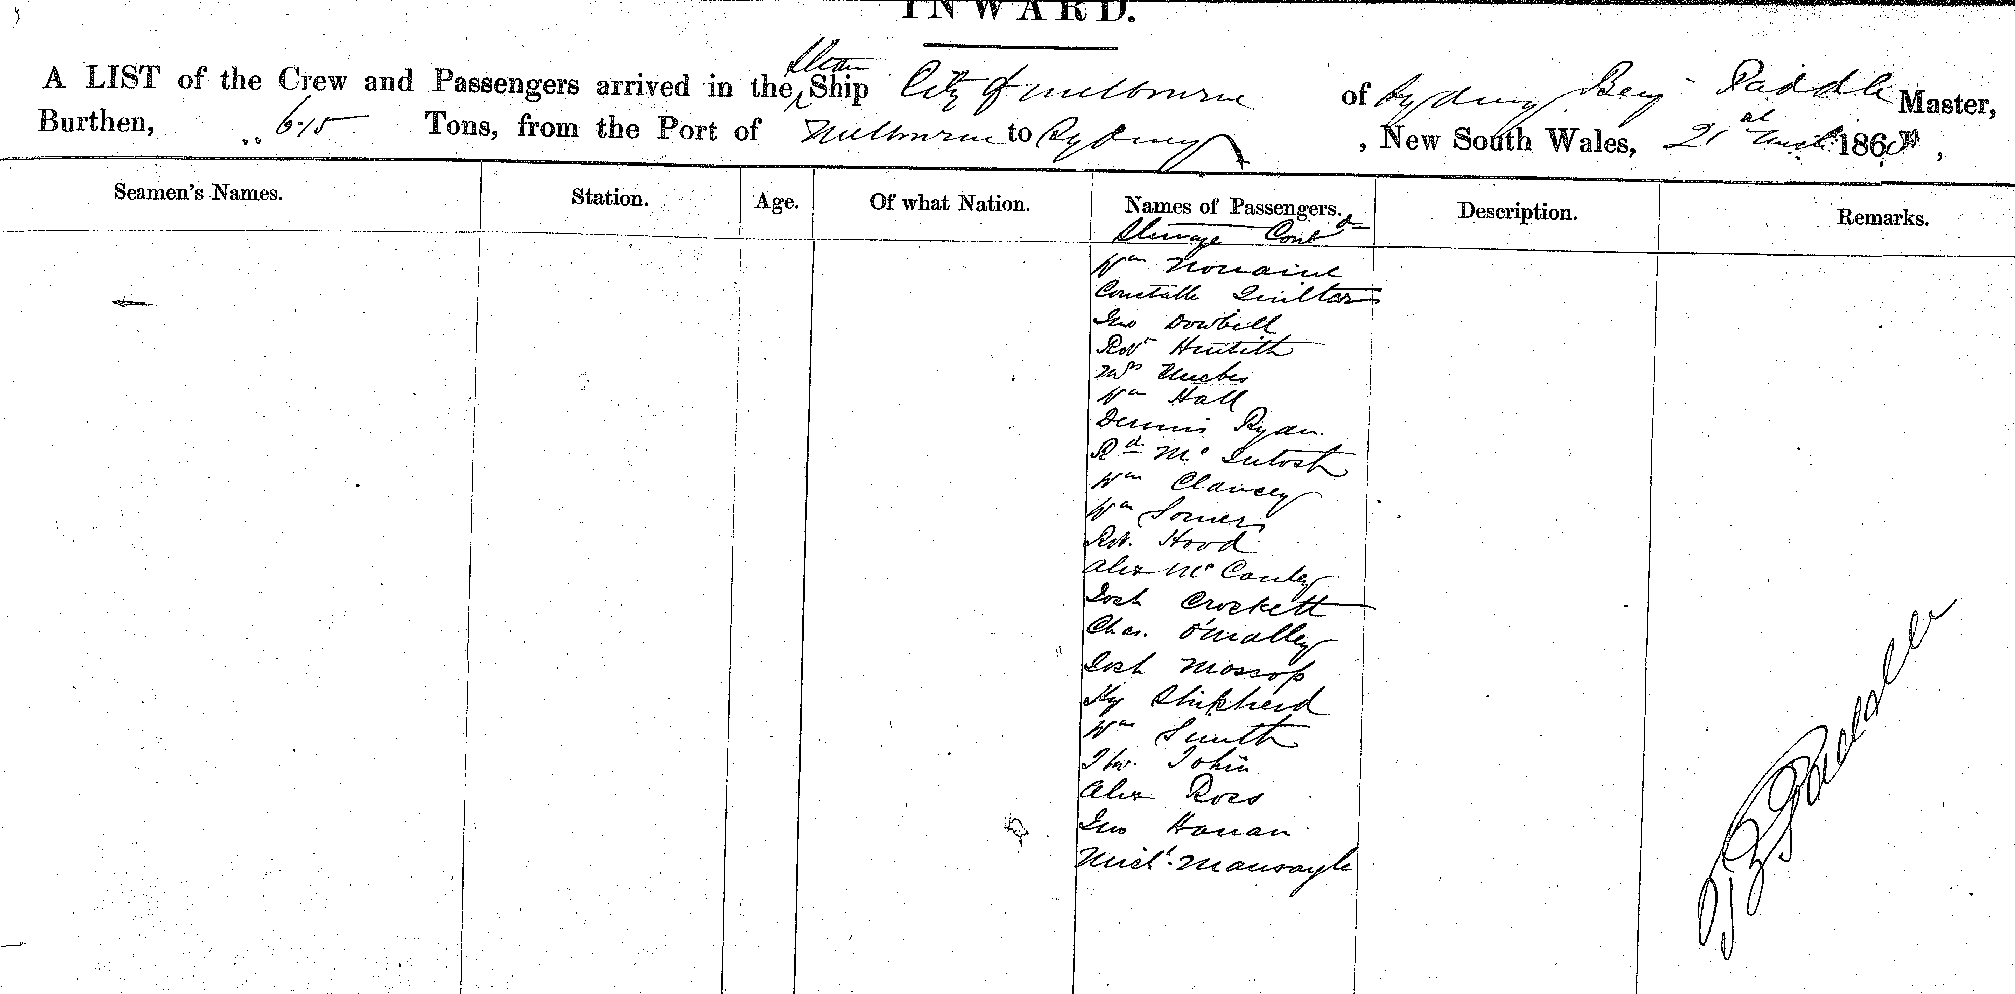 INWARD.
A LIST of the Crew and Passengers arrived in the Steam Ship City of Melbourne of Sydney Benj Paddle Master,
Burthen, 615 Tons, from the Port of Melbourne to Sydney, New South Wales, 21 186
Seamen's Names. Station. Age. Of what Nation. Names of Passengers. Description. Remarks.
Steerage Contd
Wm
Constable
Jno Dowbell
Robt
Mrs
Wm Hall
Dennis Ryan
Rd McIntosh
Wm Clancey
Wm Somers
Rob. Hood
Alex McCauley
Josh Crockett
Chas. O'Malley
Josh Mossop
Hy Shepherd
Wm Smith
Tobin
Alex Ross
Jno Hanan
Michl.
B Paddle